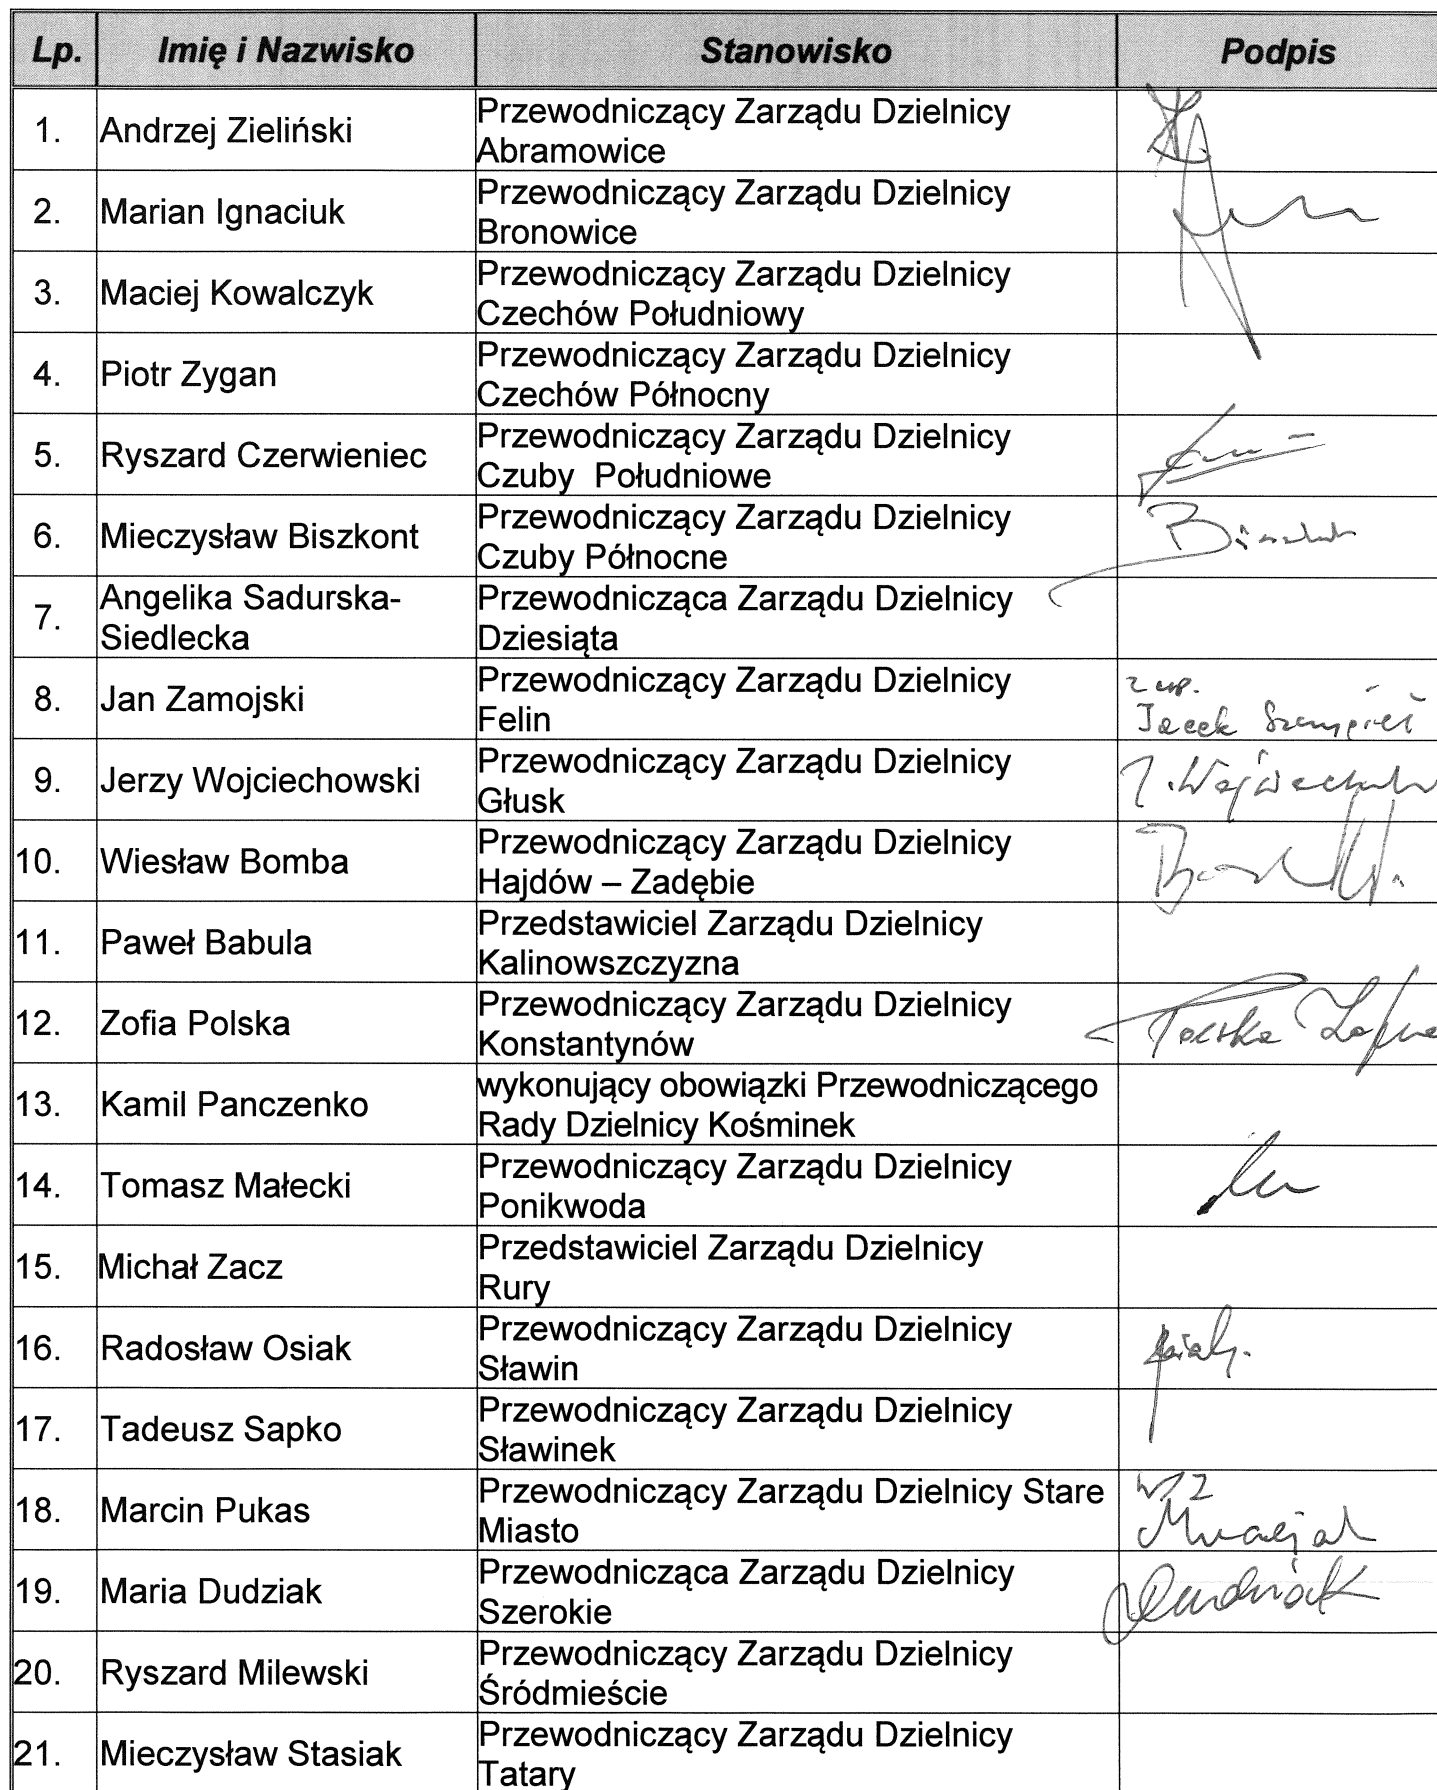 Lp. Imię i Nazwisko Stanowisko Podpis
1. Andrzej Zieliński Przewodniczący Zarządu Dzielnicy
Abramowice
2. Marian Ignaciuk Przewodniczący Zarządu Dzielnicy
Bronowice
3. Maciej Kowalczyk Przewodniczący Zarządu Dzielnicy
Czechów Południowy
4. Piotr Zygan Przewodniczący Zarządu Dzielnicy
Czechów Północny
5. Ryszard Czerwieniec Przewodniczący Zarządu Dzielnicy
Czuby Południowe
6. Mieczysław Biszkont Przewodniczący Zarządu Dzielnicy
Czuby Północne
7. Angelika Sadurska-
Siedlecka
Przewodnicząca Zarządu Dzielnicy
Dziesiąta
8. Jan Zamojski Przewodniczący Zarządu Dzielnicy
Felin
Jacek
9. Jerzy Wojciechowski Przewodniczący Zarządu Dzielnicy
Głusk
10. Wiesław Bomba Przewodniczący Zarządu Dzielnicy
Hajdów – Zadębie
11. Paweł Babula Przedstawiciel Zarządu Dzielnicy
Kalinowszczyzna
12. Zofia Polska Przewodniczący Zarządu Dzielnicy
Konstantynów
Polska Zofia
13. Kamil Panczenko wykonujący obowiązki Przewodniczącego
Rady Dzielnicy Kośminek
14. Tomasz Małecki Przewodniczący Zarządu Dzielnicy
Ponikwoda
15. Michał Zacz Przedstawiciel Zarządu Dzielnicy
Rury
16. Radosław Osiak Przewodniczący Zarządu Dzielnicy
Sławin
17. Tadeusz Sapko Przewodniczący Zarządu Dzielnicy
Sławinek
18. Marcin Pukas Przewodniczący Zarządu Dzielnicy Stare
Miasto
19. Maria Dudziak Przewodnicząca Zarządu Dzielnicy
Szerokie
Dudziak
20. Ryszard Milewski Przewodniczący Zarządu Dzielnicy
Śródmieście
21. Mieczysław Stasiak Przewodniczący Zarządu Dzielnicy
Tatary